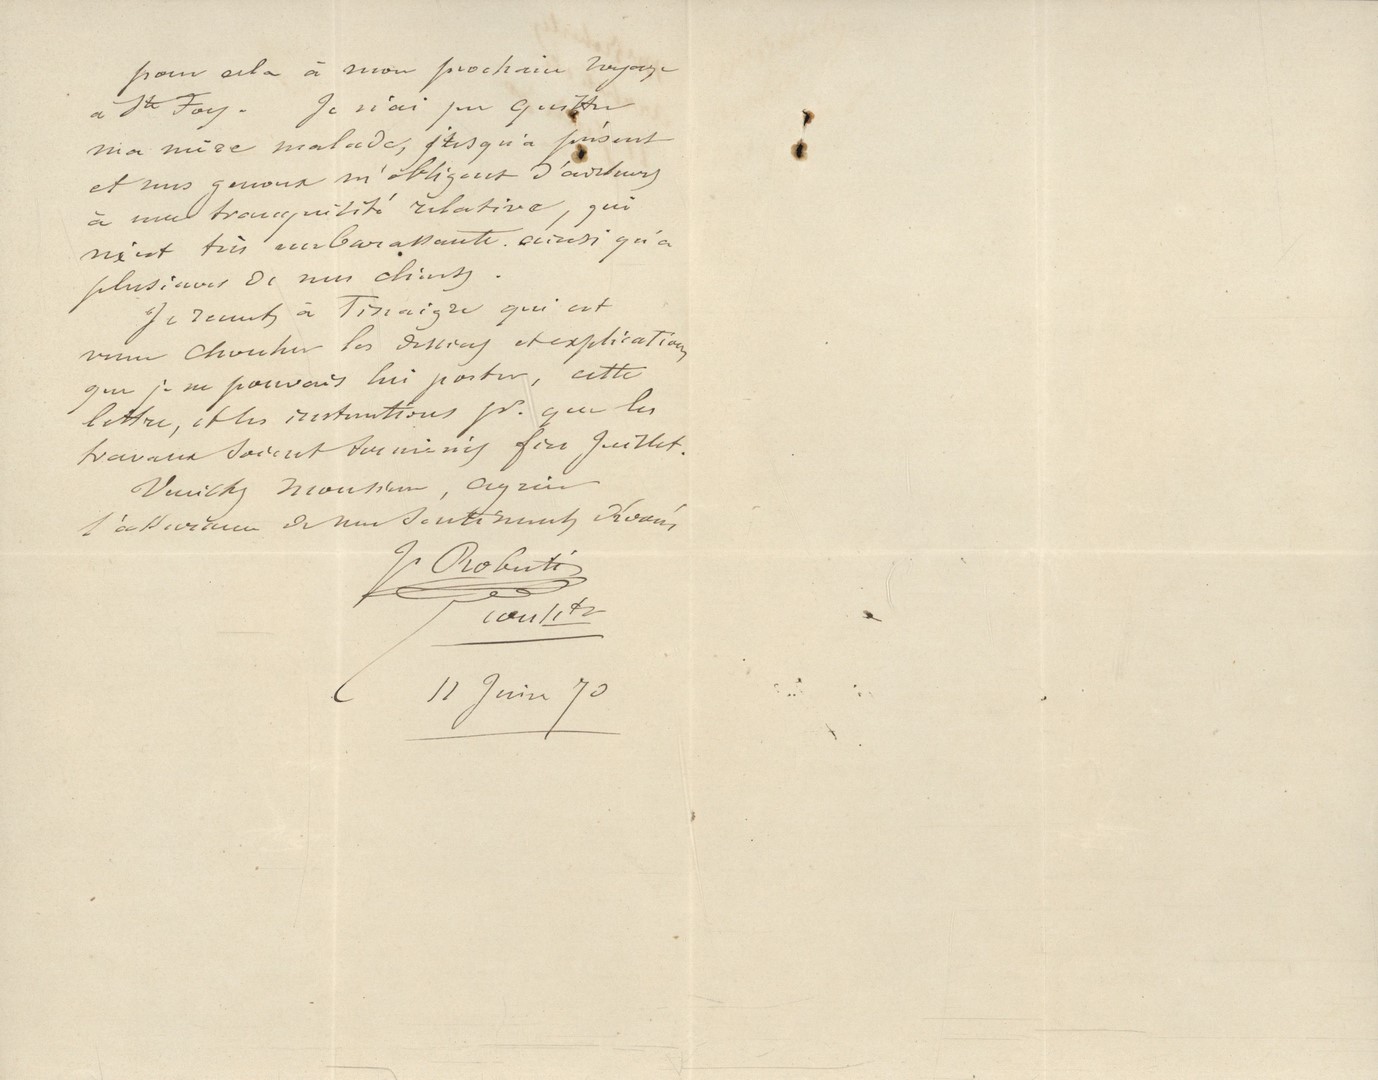 pour cela à mon prochain voyage
à Ste Foy. Je n'ai pu quitter
ma mère malade, jusqu'à présent
et mes genoux m'obligent d'ailleurs
à une tranquilité relative, qui
m'est très embarassante. ainsi qu'à
plusieurs de mes clients.
Je remets à Tinaigre qui est
venu chercher les dessins et explications
que je ne pouvais lui porter, cette
lettre, et les instructions pr. que les
travaux soient terminés fin Juillet.
Veuillez Monsieur, agréer
l'assurance de mes sentiments dévoués
Roberti
11 Juin 70